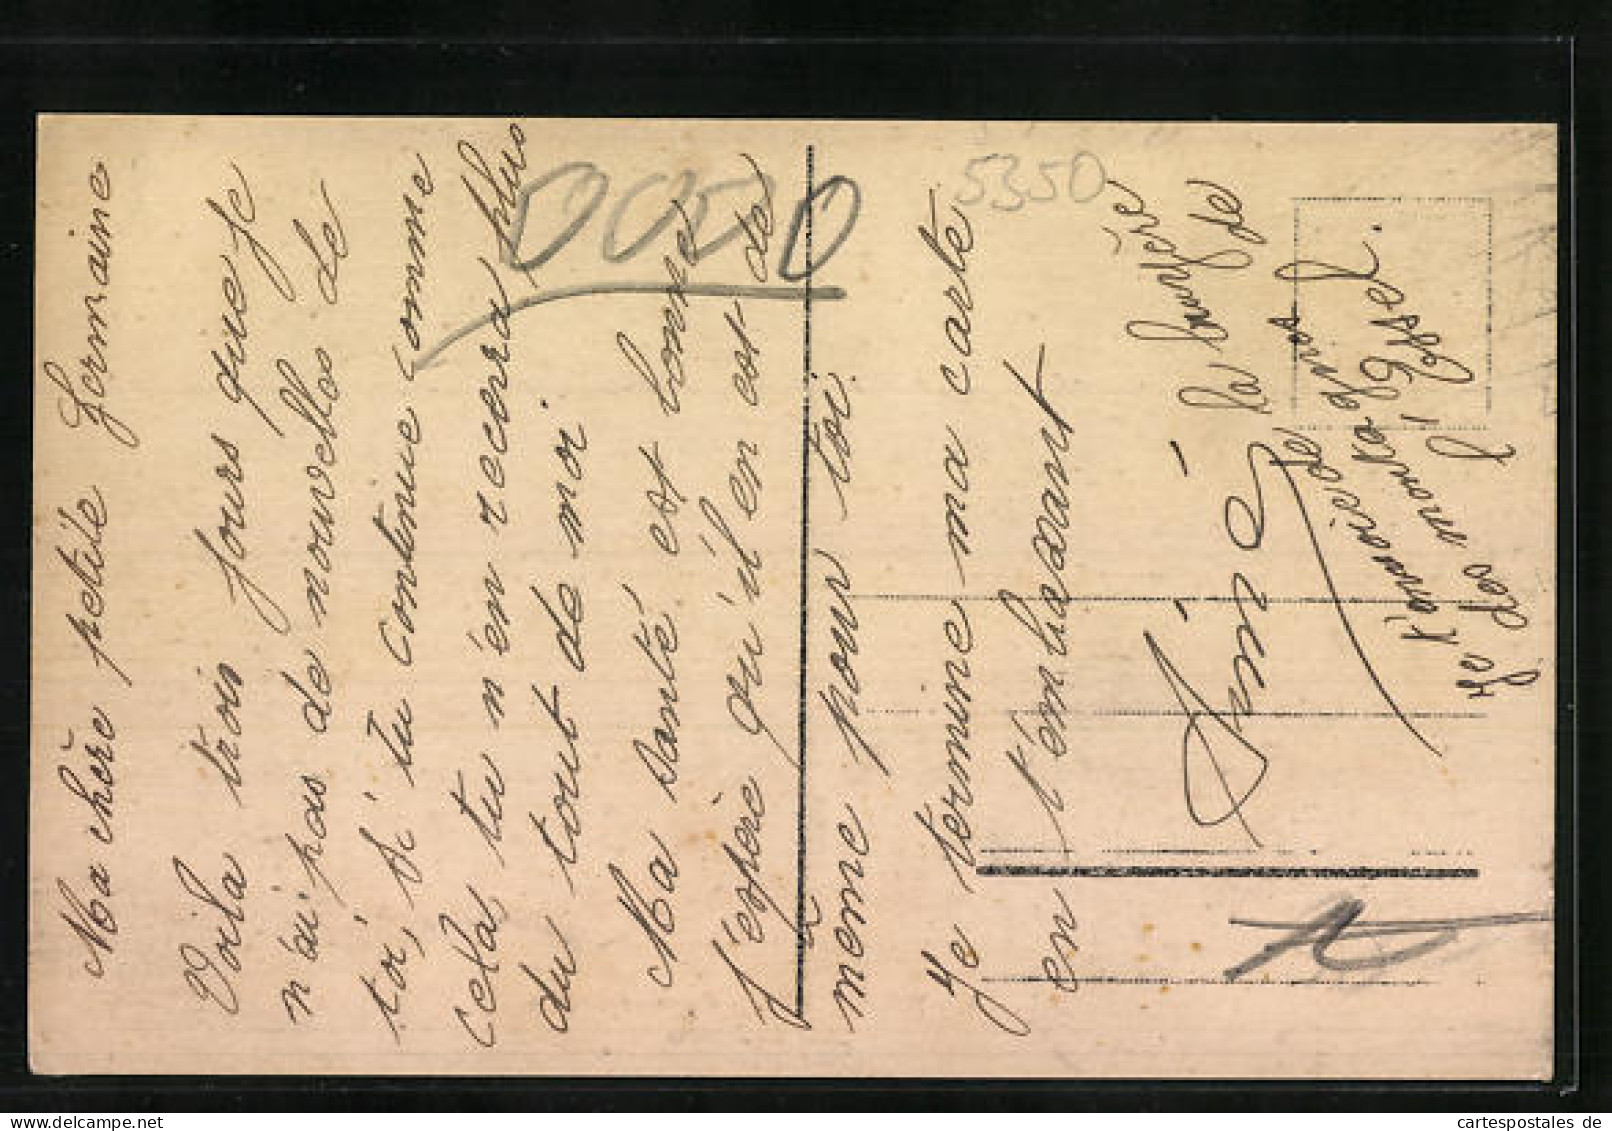 Ma chère petite Germaine
Voila trois jours que je
n'ai pas de nouvelles de
toi, Si tu continue comme
cela, tu n'en recevra plus
du tout de moi
Ma santé est bonne
J'espère qu'il en est de
même pour toi.
Je termine ma carte
en t'embrassant
Aimé
la
de
Je l'envoie de
5350
cartespostales de